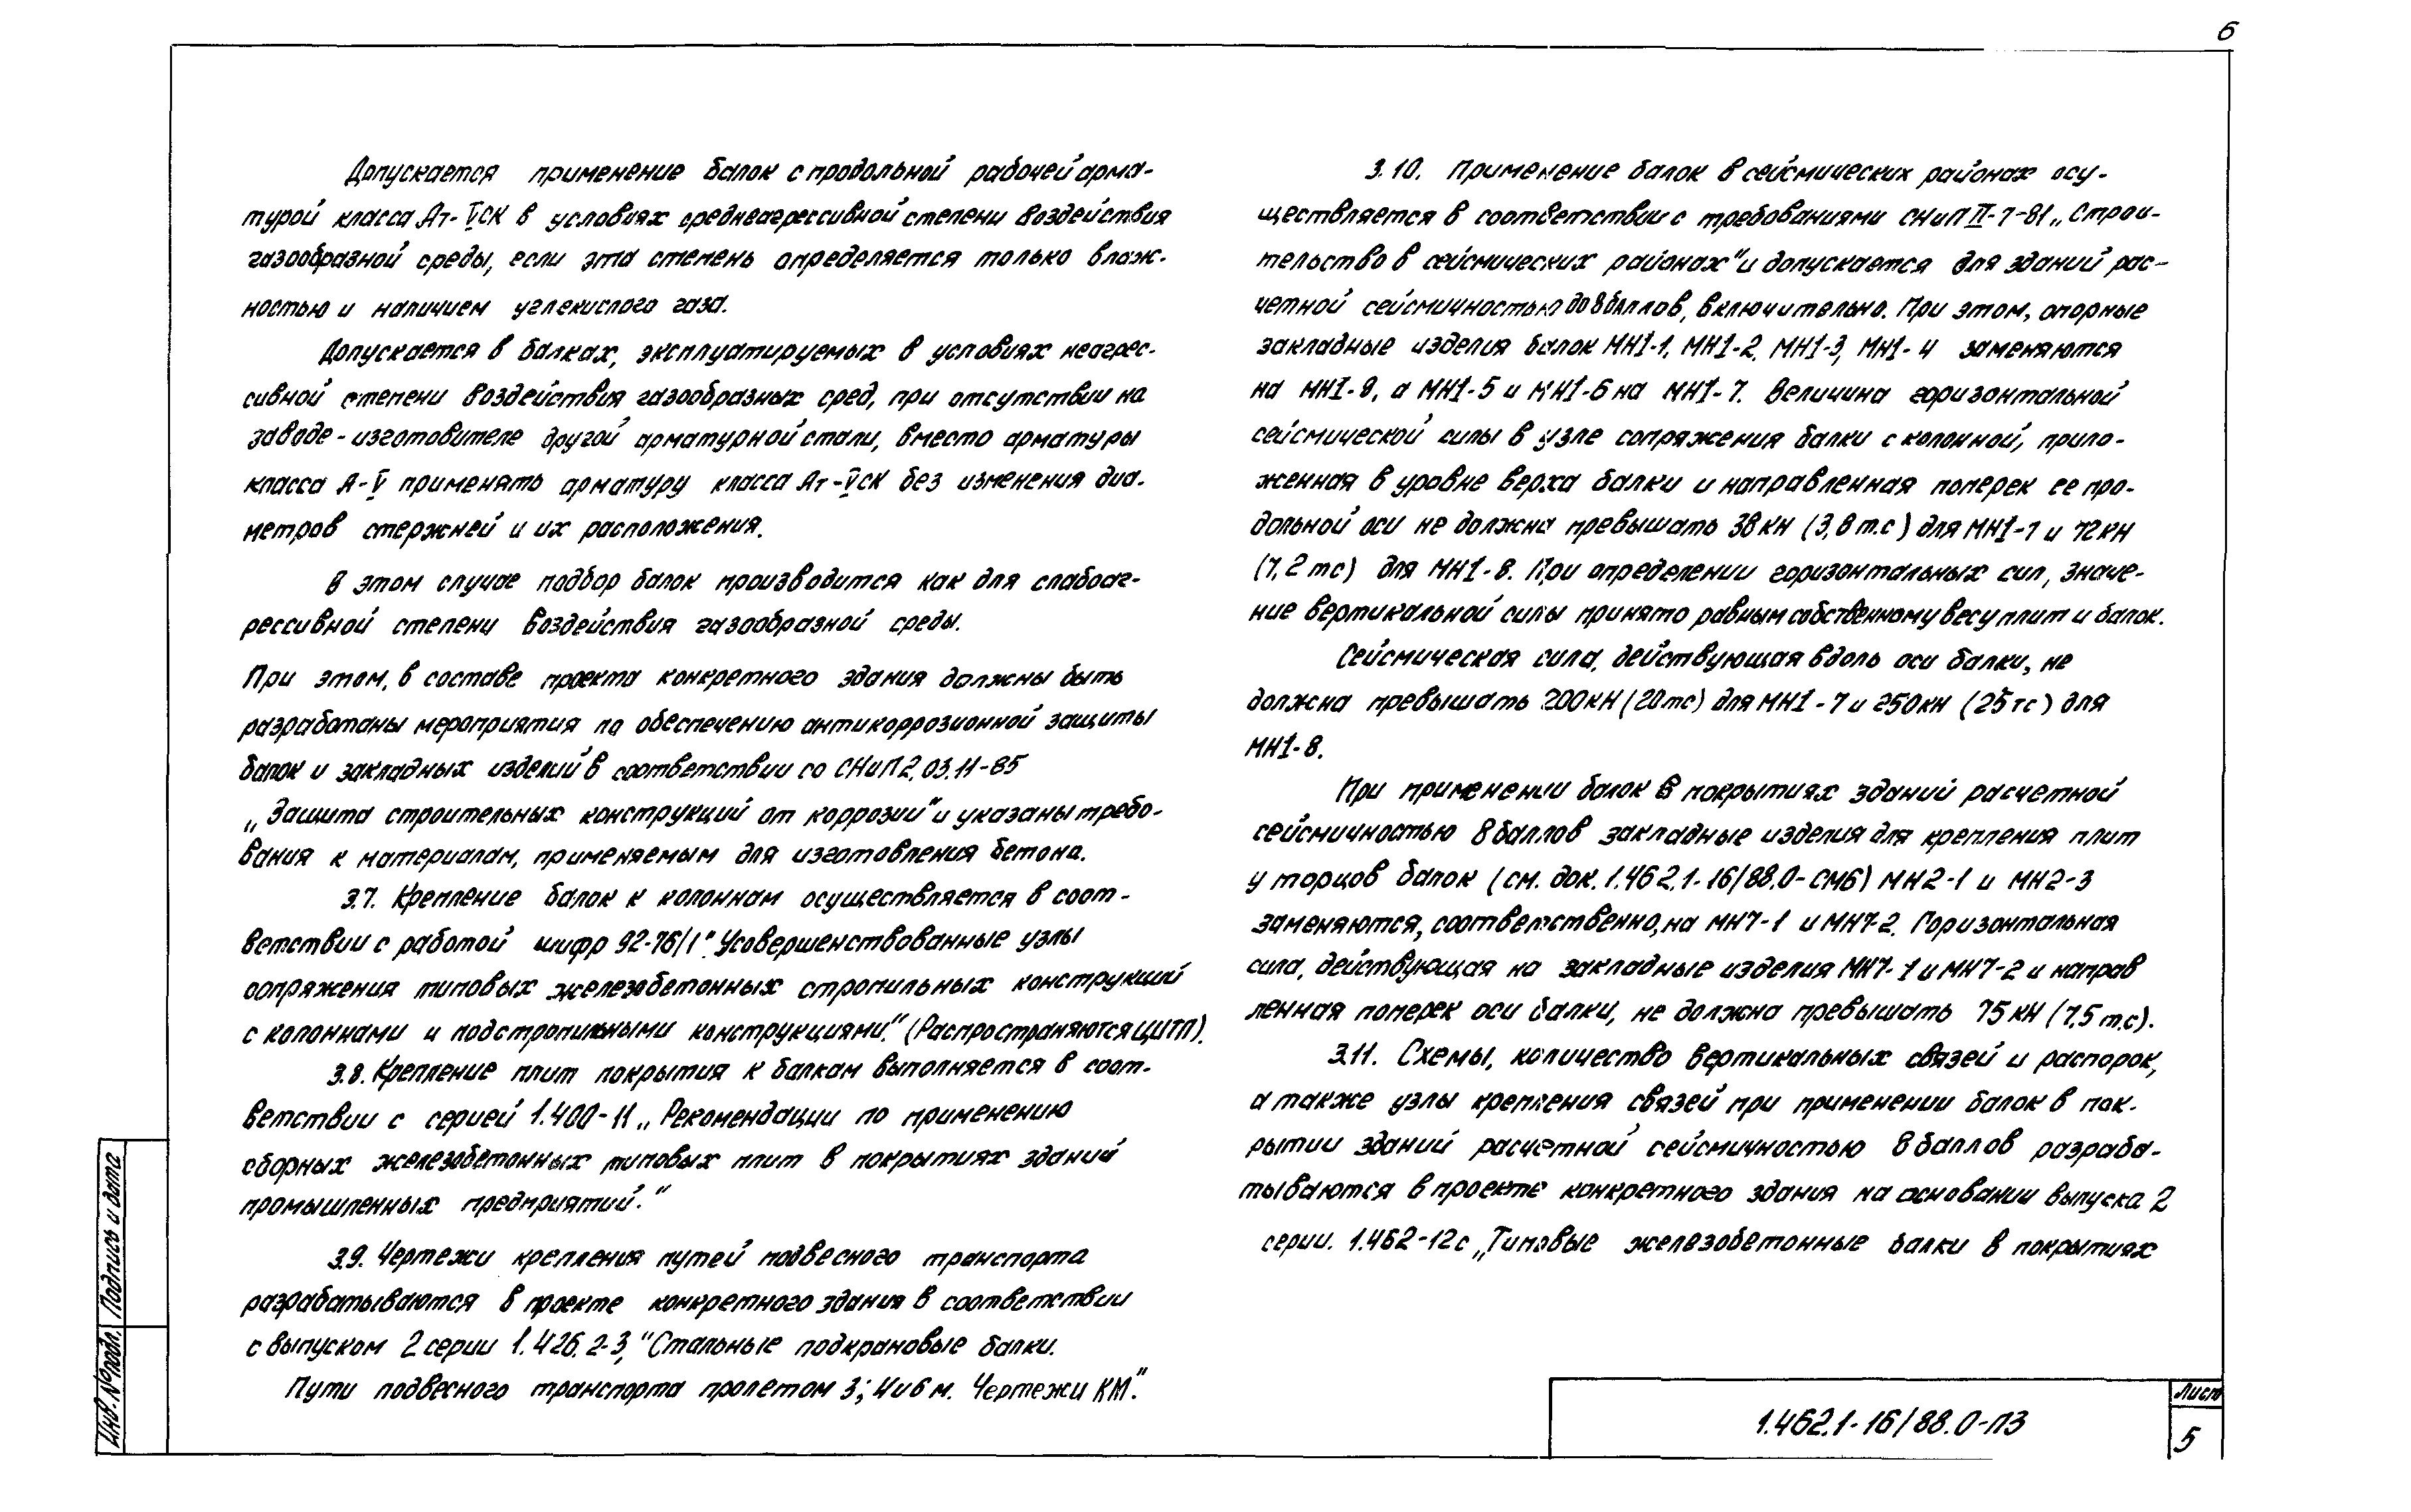 6
Допускается применение балок с продольной рабочей арма-
турой класса Ат-VСК в условиях среднеагрессивной степени воздействия
газообразной среды, если эта степень определяется только влаж-
ностью и наличием углекислого газа.
Допускается в балках, эксплуатируемых в условиях неагрес-
сивной степени воздействия газообразных сред, при отсутствии на
заводе-изготовителе другой арматурной стали, вместо арматуры
класса А-V применять арматуру класса Ат-VСК без изменения диа-
метров стержней и их расположения.
В этом случае подбор балок производится как для слабоаг-
рессивной степени воздействия газообразной среды.
При этом, в составе проекта конкретного здания должны быть
разработаны мероприятия по обеспечению антикоррозионной защиты
балок и закладных изделий в соответствии со СНиП 2.03.11-85
„Защита строительных конструкций от коррозии" и указаны требо-
вания к материалам, применяемым для изготовления бетона.
3.7. Крепление балок к колоннам осуществляется в соот-
ветствии с работой шифр 92-76/1 "Усовершенствованные узлы
сопряжения типовых железобетонных стропильных конструкций
с колоннами и подстропильными конструкциями." (Распространяются ЦИТП).
3.8. Крепление плит покрытия к балкам выполняется в соот-
ветствии с серией 1.400-11 „Рекомендации по применению
сборных железобетонных типовых плит в покрытиях зданий
промышленных предприятий."
3.9. Чертежи крепления путей подвесного транспорта
разрабатываются в проекте конкретного здания в соответствии
с выпуском 2 серии 1.426.2-3, "Стальные подкрановые балки.
Пути подвесного транспорта пролетом 3; 4 и 6 м. Чертежи КМ."
3.10. Применение балок в сейсмических районах осу-
ществляется в соответствии с требованиями СНиП II-7-81 „Строи-
тельство в сейсмических районах" и допускается для зданий рас-
четной сейсмичностью до 8 баллов, включительно. При этом, опорные
закладные изделия балок МН1-1, МН1-2, МН1-3, МН1-4 заменяются
на МН1-8, а МН1-5 и МН1-6 на МН1-7. Величина горизонтальной
сейсмической силы в узле сопряжения балки с колонной, прило-
женная в уровне верха балки и направленная поперек ее про-
дольной оси не должна превышать 38 кН (3,8 т.с) для МН1-7 и 72 кН
(7,2 тс) для МН1-8. При определении горизонтальных сил, значе-
ние вертикальной силы принято равным собственному весу плит и балок.
Сейсмическая сила, действующая вдоль оси балки, не
должна превышать 200 кН (20 тс) для МН1-7 и 250 кН (25 тс) для
МН1-8.
При применении балок в покрытиях зданий расчетной
сейсмичностью 8 баллов закладные изделия для крепления плит
у торцов балок (см. док. 1.462.1-16/88.0-СМ6) МН2-1 и МН2-3
заменяются, соответственно, на МН7-1 и МН7-2. Горизонтальная
сила, действующая на закладные изделия МН7-1 и МН7-2 и направ
ленная поперек оси балки, не должна превышать 75 кН (7,5 т.с).
3.11. Схемы, количество вертикальных связей и распорок,
а также узлы крепления связей при применении балок в пок-
рытии зданий расчетной сейсмичностью 8 баллов разраба-
тываются в проекте конкретного здания на основании выпуска 2
серии. 1.462-12с „Типовые железобетонные балки в покрытиях
Инв. № подл. Подпись и дата
1.462.1-16/88.0-ПЗ
Лист
5